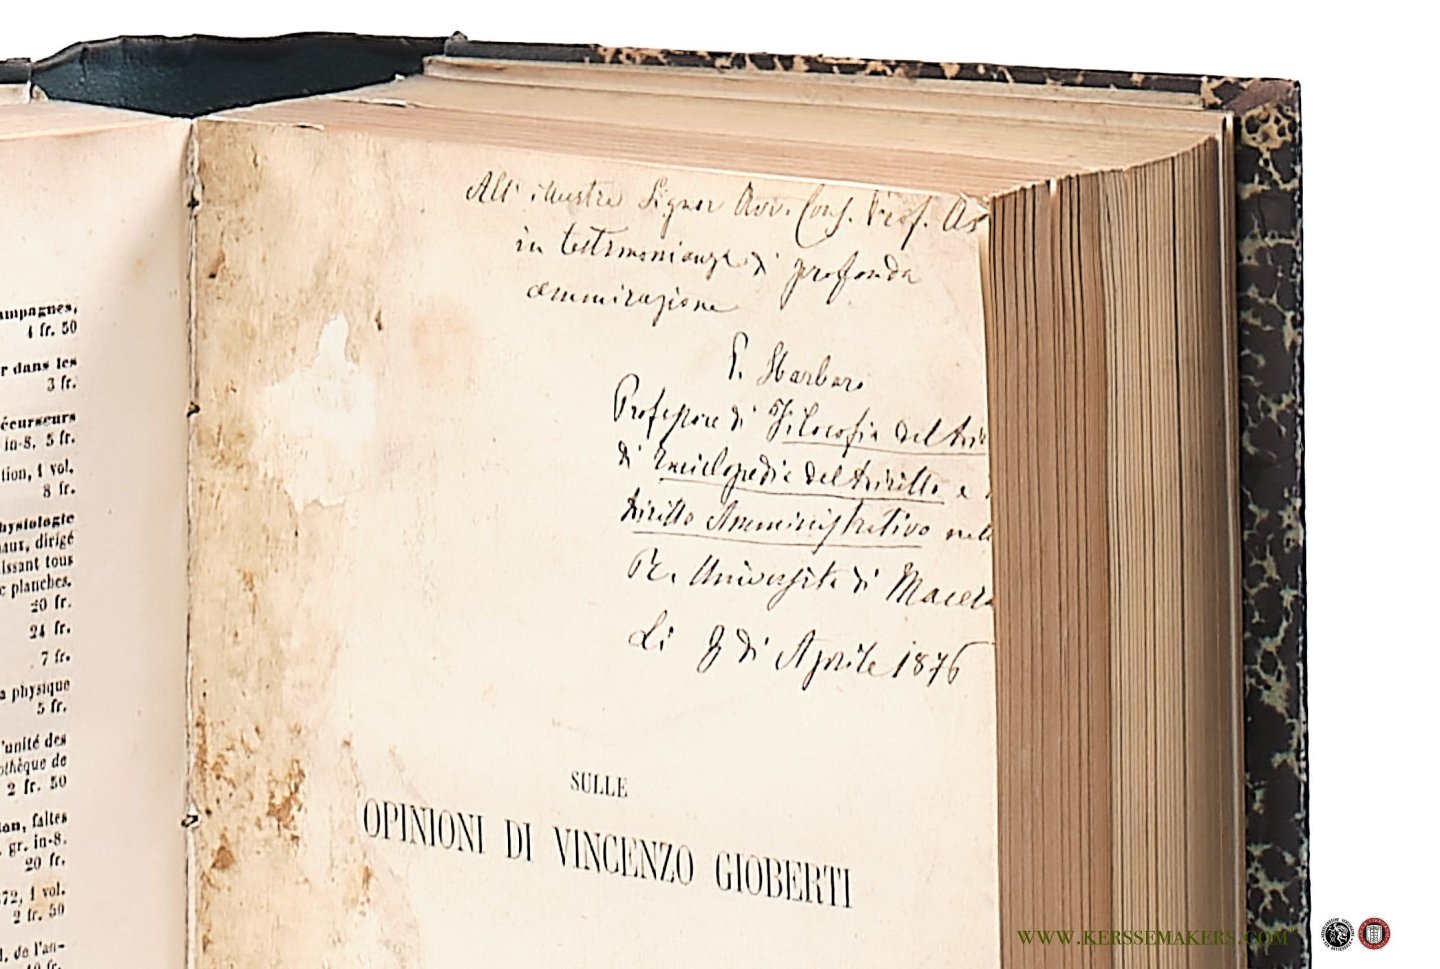 ampagnes,
4 fr. 50
r dans les
3 fr.
écurseurs
in-8. 5 fr.
tion, 1 vol.
8 fr.
hysiologie
aux, dirigé
issant tous
c planches.
20 fr.
24 fr.
7 fr.
a physique
5 fr.
'unité des
othèque de
2 fr. 50
on, faites
gr. in-8.
20 fr.
72, 1 vol.
2 fr. 50
l, de l'an-
10 fr.
All' illustre Signor Avv. Prof. As
in testimonianza di profonda
ammirazione
P. Sbarbaro
Professore di Filosofia del diri
di Enciclopedia del diritto e
diritto Amministrativo nella
Rª. Università di Macera
Li 8 di Aprile 1876
SULLE
OPINIONI DI VINCENZO GIOBERTI
WWW.KERSSEMAKERS.COM